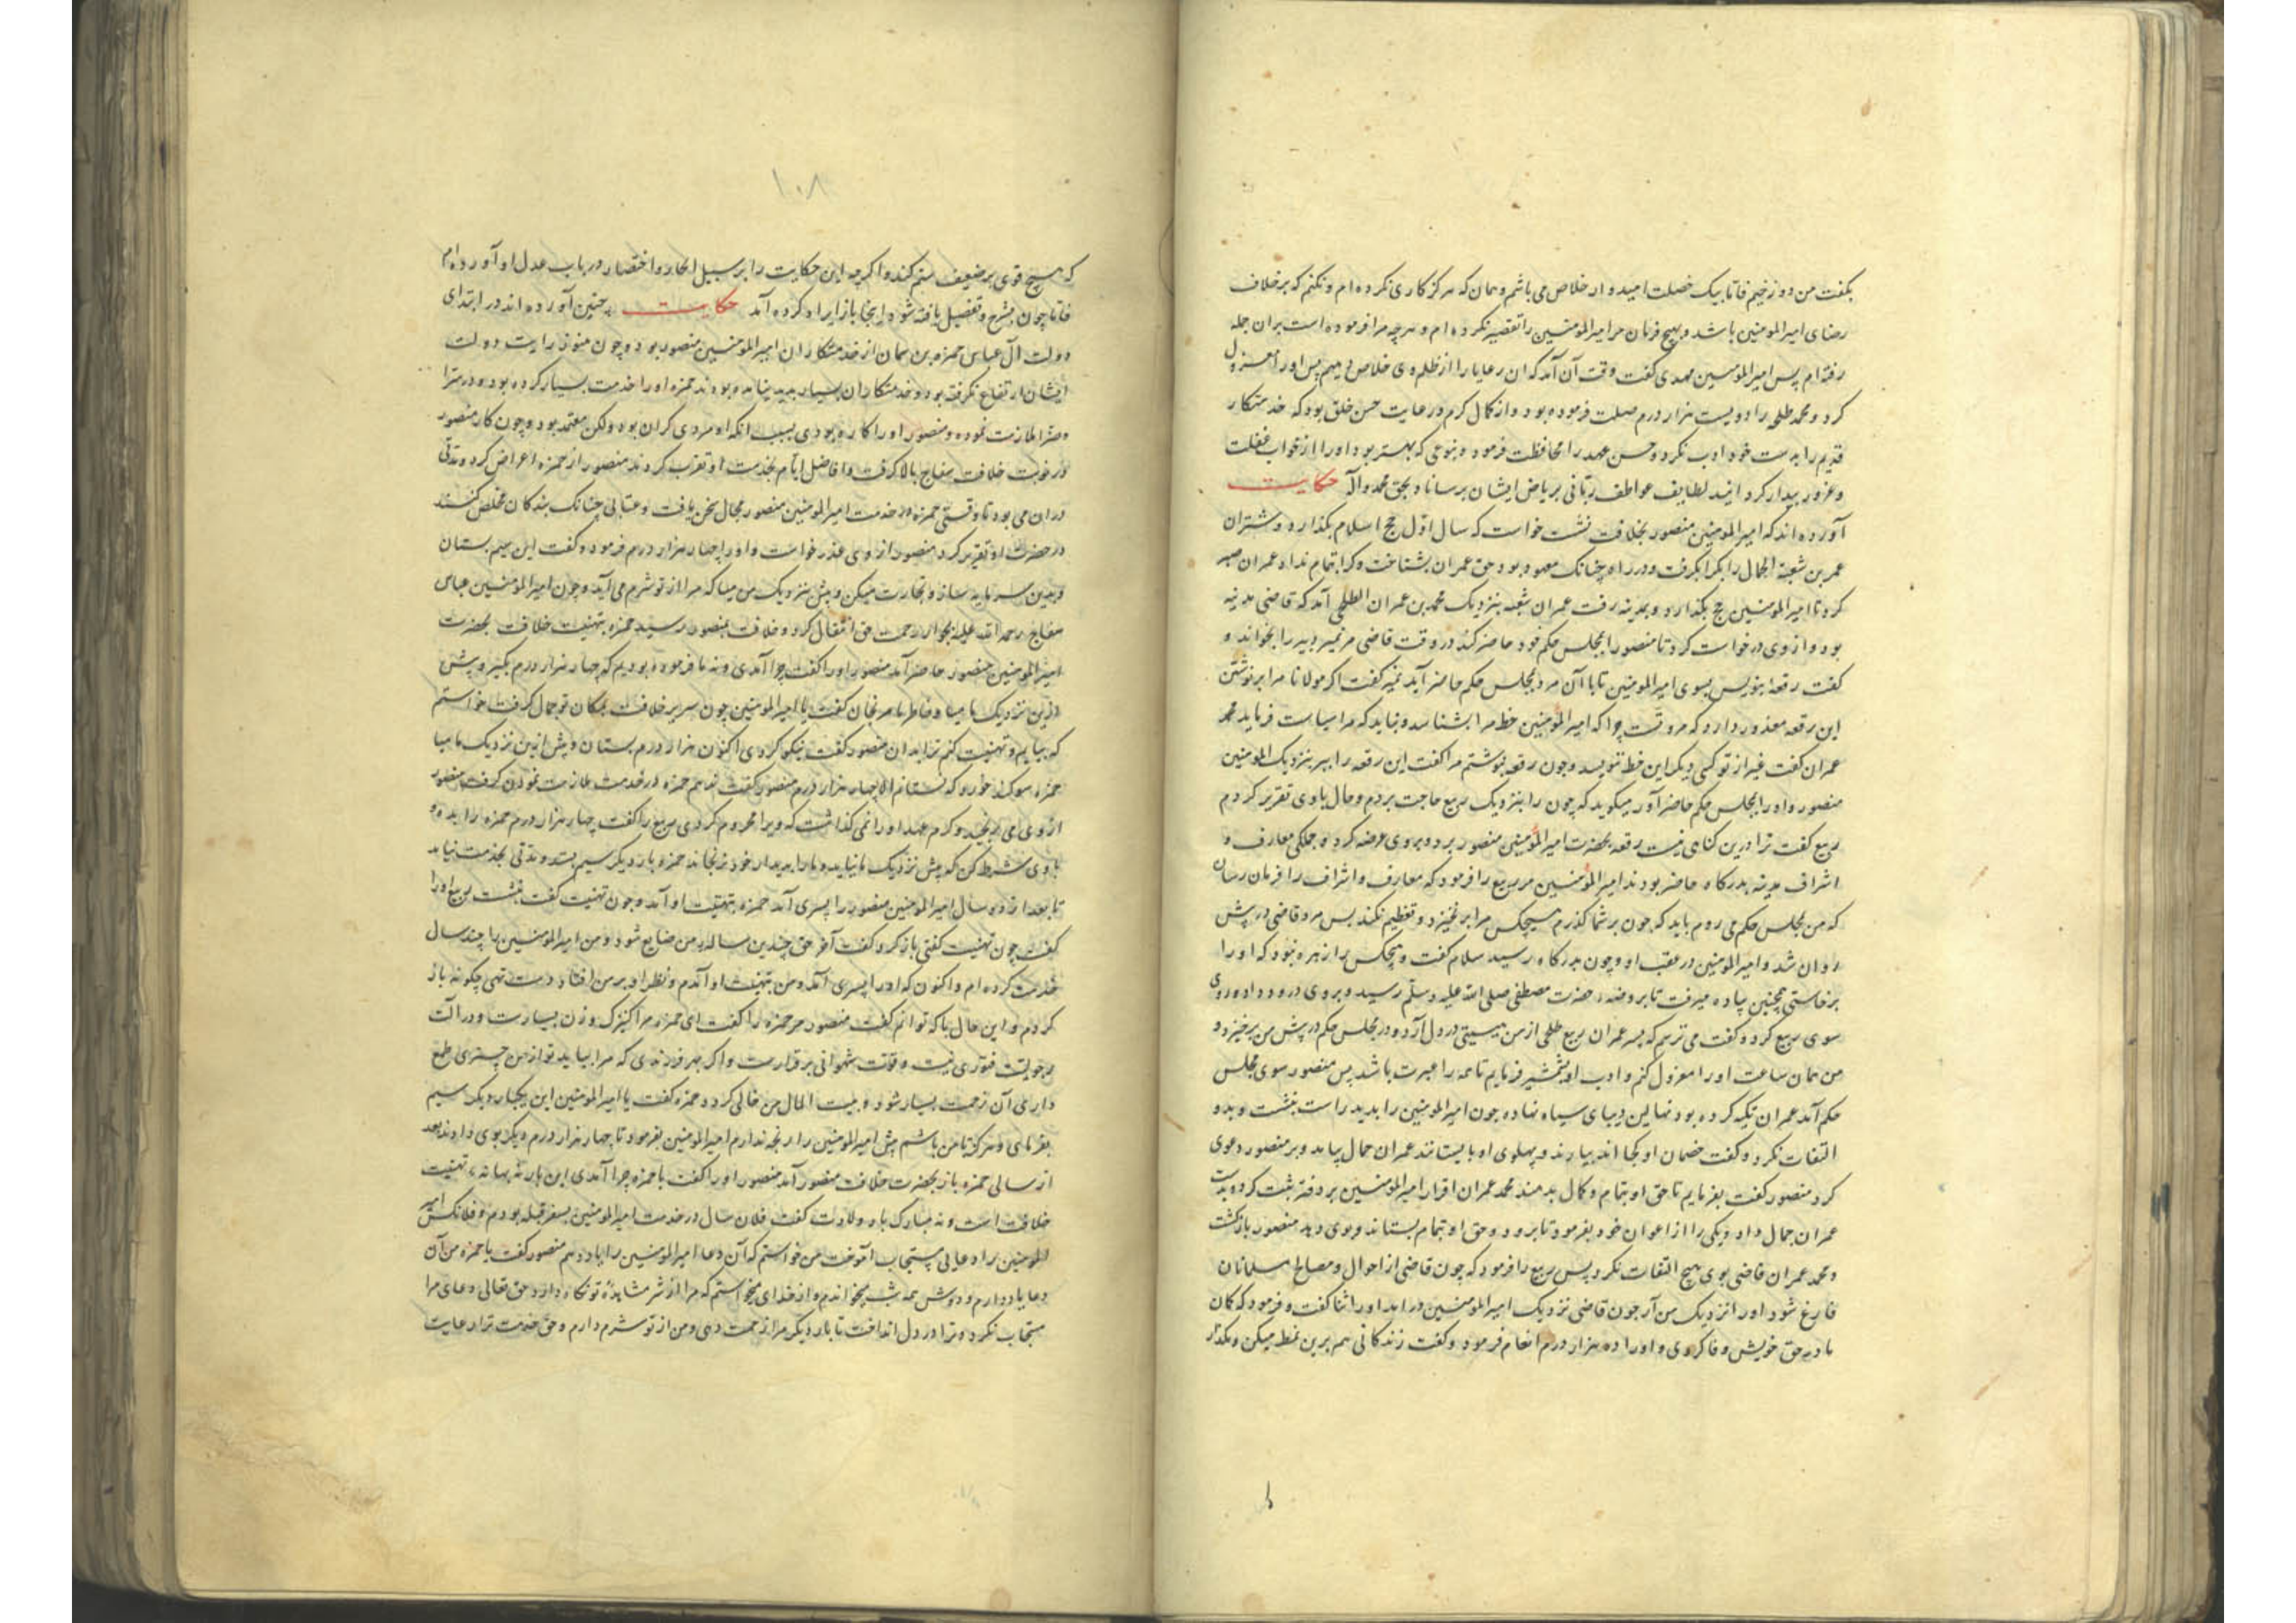 بکفت من دوزخیم فاتا بیک خصلت امیدوار خلاص می باشم و همان که هرکز کاری نکرده ام و نکنم که برخلاف
رضای امیرالمومنین باشد و هیچ فرمان مر امیرالمومنین را تقصیر نکرده ام و هرچه مرا فرموده است بران جمله
رفته ام پس امیرالمومنین مهدی کفت وقت آن آمد که ان رعایا را از ظلم وی خلاص دهیم پس او را معزول
کرد و محمد طلحی را دویست هزار درم صلت فرموده بود و از کمال کرم و رعایت حسن خلق بود که خدمتکار
قدیم را بدست خود ادب نکرد و حسن عهد را محافظت فرمود و بنوعی که بهتر بود او را از خواب غفلت
و غرور بیدار کردانید لطایف عواطف ربانی بریاض ایشان برساناد بحق محمد و آله حکایت
آورده اند که امیرالمومنین منصور بخلافت نشست خواست که سال اول حج اسلام بکذارد و شتران
عمر بن شعبة الجمال را بکرا بکرفت و در راه چنانک معهود بود حق عمران بشناخت و کرا بتمام نداد عمران صبر
کرد تا امیرالمومنین حج بکذارد و بمدینه رفت عمران شعبه بنزدیک محمد بن عمران الطلحی آمد که قاضی مدینه
بود و از وی درخواست کرد تا منصور را بمجلس حکم خود حاضر کند در وقت قاضی مر نمیر دبیر را بخواند و
کفت رقعه بنویس بسوی امیرالمومنین تا با آن مرد بمجلس حکم حاضر آید نمیر کفت اکر مولانا مرا برنوشتن
این رقعه معذور دارد که مروتست چرا که امیرالمومنین خط مرا بشناسد و نباید که مرا سیاست فرماید محمد
عمران کفت غیر از تو کسی دیکر این خط ننویسد و چون رقعه بنوشتم مرا کفت این رقعه را ببر بنزدیک امیرالمومنین
منصور و او را بمجلس حکم حاضر آور میکوید که چون را بنزدیک ربیع حاجب بردم و حال با وی تقریر کردم
ربیع کفت ترا درین کناهی نیست رقعه بحضرت امیرالمومنین منصور برد و بروی عرضه کرد و جملکی معارف و
اشراف مدینه بدرکاه حاضر بودند امیرالمومنین مر ربیع را فرمود که معارف و اشراف را فرمان رسان
که من بمجلس حکم می روم باید که چون برشما کذرم هیچکس مرا برنخیزد و تعظیم نکند پس مرد قاضی در پیش
روان شد و امیرالمومنین در عقب او و چون بدرکاه رسید سلام کفت و هیچکس را زهره نبود که او را
برخاستی همچنین پیاده میرفت تا بروضه حضرت مصطفی صلی الله علیه وسلم رسید و بروی درود داد و روی
سوی ربیع کرد و کفت می ترسم که پسر عمران ربیع طلحی از من هیبتی در دل آرد و در مجلس حکم در پیش من برخیزد و
من همان ساعت او را معزول کنم و ادب او بشمشیر فرمایم تا همه را عبرت باشد پس منصور سوی مجلس
حکم آمد عمران تکیه کرده بود نهالین دیبای سیاه نهاده چون امیرالمومنین را بدید راست بنشست و بدو
التفات نکرد و کفت خصمان او کجا اند بیارند و پهلوی او بایستانند عمران حمال بیامد و بر منصور دعوی
کرد منصور کفت بفرمایم تا حق او بتمام و کمال بدهند محمد عمران اقرار امیرالمومنین بر دفتر ثبت کرد و بدست
عمران جمال داد و یکی را از اعوان خود بفرمود تا برود و حق او بتمام بستاند و بوی دهد منصور بازکشت
و محمد عمران قاضی بوی هیچ التفات نکرد پس ربیع را فرمود که چون قاضی از احوال و مصالح مسلمانان
فارغ شود او را نزدیک من آر چون قاضی نزدیک امیرالمومنین درآمد او را ثنا کفت و فرمود که کان
ما در حق خویش وفا کردی و او را ده هزار درم انعام فرمود و کفت زندکانی هم برین نمط میکن و مکذار
۱۰۸
که هیچ قوی بر ضعیف ستم کند و اکرچه این حکایت را بر سبیل ایجاز و اختصار در باب عدل او آورده ام
فاتا چون بشرح و تفصیل یافته شود اینجا باز ایراد کرده آمد حکایت چنین آورده اند در ابتدای
دولت آل عباس حمزه بن سمان از خدمتکاران امیرالمومنین منصور بود و چون هنوز رایت دولت
ایشان ارتفاع نکرفته بود و خدمتکاران بسیار پدید نیامده بودند حمزه او را خدمت بسیار کرده بود و در سرا
و ضرا ملازمت نموده و منصور او را کاره بودی بسبب آنکه او مردی کران بود ولکن معتمد بود و چون کار منصور
در نوبت خلافت سفاح بالا کرفت و افاضل ایام بخدمت او تقرب کردند منصور از حمزه اعراض کرد و مدتی
دران می بود تا وقتی حمزه در خدمت امیرالمومنین منصور مجال سخن یافت و عتابی چنانک بندکان مخلص کنند
در حضرت او تقریر کرد منصور از وی عذر خواست و او را چهار هزار درم فرمود و کفت این سیم بستان
و بدین سرمایه ساز و تجارت میکن و پیش بنزدیک من میا که مرا از تو شرم می آید و چون امیرالمومنین عباس
سفاح رحمة الله علیه بجوار رحمت حق انتقال کرد و خلافت بمنصور رسید حمزه بتهنیت خلافت بحضرت
امیرالمومنین منصور حاضر آمد منصور او را کفت چرا آمدی و نه ما فرموده بودیم که چهار هزار درم بکیر و پیش
ازین نزدیک ما میا و خاطر ما مرنجان کفت یا امیرالمومنین چون سریر خلافت بمکان تو جمال کرفت خواستم
که بیایم و تهنیت کنم ترا بدان منصور کفت نیکو کردی اکنون هزار درم بستان و پیش ازین نزدیک ما میا
حمزه سوکند خورد که نستانم الا چهار هزار درم منصور کفت ندهم حمزه در خدمت ملازمت نمودن کرفت منصور
از وی می رنجید و کرم عهد او را نمی کذاشت که ویرا محروم کردی ربیع را کفت چهار هزار درم حمزه را بده و
با وی شرط کن که پیش نزدیک ما نیاید و ما را بدیدار خود نرنجاند حمزه بار دیکر سیم بستد و مدتی بخدمت نیامد
تا بعد از دو سال امیرالمومنین منصور را پسری آمد حمزه بتهنیت او آمد و چون تهنیت کفت بنشست ربیع او را
کفت چون تهنیت کفتی بازکرد کفت آخر حق چندین ساله من ضایع شود و من امیرالمومنین را چند سال
خدمت کرده ام و اکنون که او را پسری آمد و من بتهنیت او آمدم و نظر او بر من افتاد دست تهی چکونه باز
کردم و این حال با که توانم کفت منصور مر حمزه را کفت ای حمزه مرا کنیزک و زن بسیارست و در آلت
رجولیت فتوری نیست و قوت شهوانی برقرارست و اکر بهر فرزندی که مرا بیاید تو از من چیزی طمع
داری آن زحمت بسیار شود و بیت المال من خالی کردد حمزه کفت یا امیرالمومنین این یکبار دیکر سیم
بفرمای و هرکز تا من باشم پیش امیرالمومنین را رنجه ندارم امیرالمومنین بفرمود تا چهار هزار درم دیکر بوی دادند بعد
از سالی حمزه باز بحضرت خلافت منصور آمد منصور او را کفت یا حمزه چرا آمدی این بار نه بهانه تهنیت
خلافت است و نه مبارک باد ولادت کفت فلان سال در خدمت امیرالمومنین بسفر قبله بودم و فلانکس امیر
المومنین را دعایی مستجاب آموخت من خواستم که آن دعا امیرالمومنین را یاد دهم منصور کفت یا حمزه من آن
دعا یاد دارم و دوش همه شب بخواندم و از خدای میخواستم که مرا از شر مشاهده تو نکاه دارد حق تعالی دعای مرا
مستجاب نکرد و ترا در دل انداخت تا بار دیکر مرا زحمت دهی و من از تو شرم دارم و حق خدمت ترا رعایت